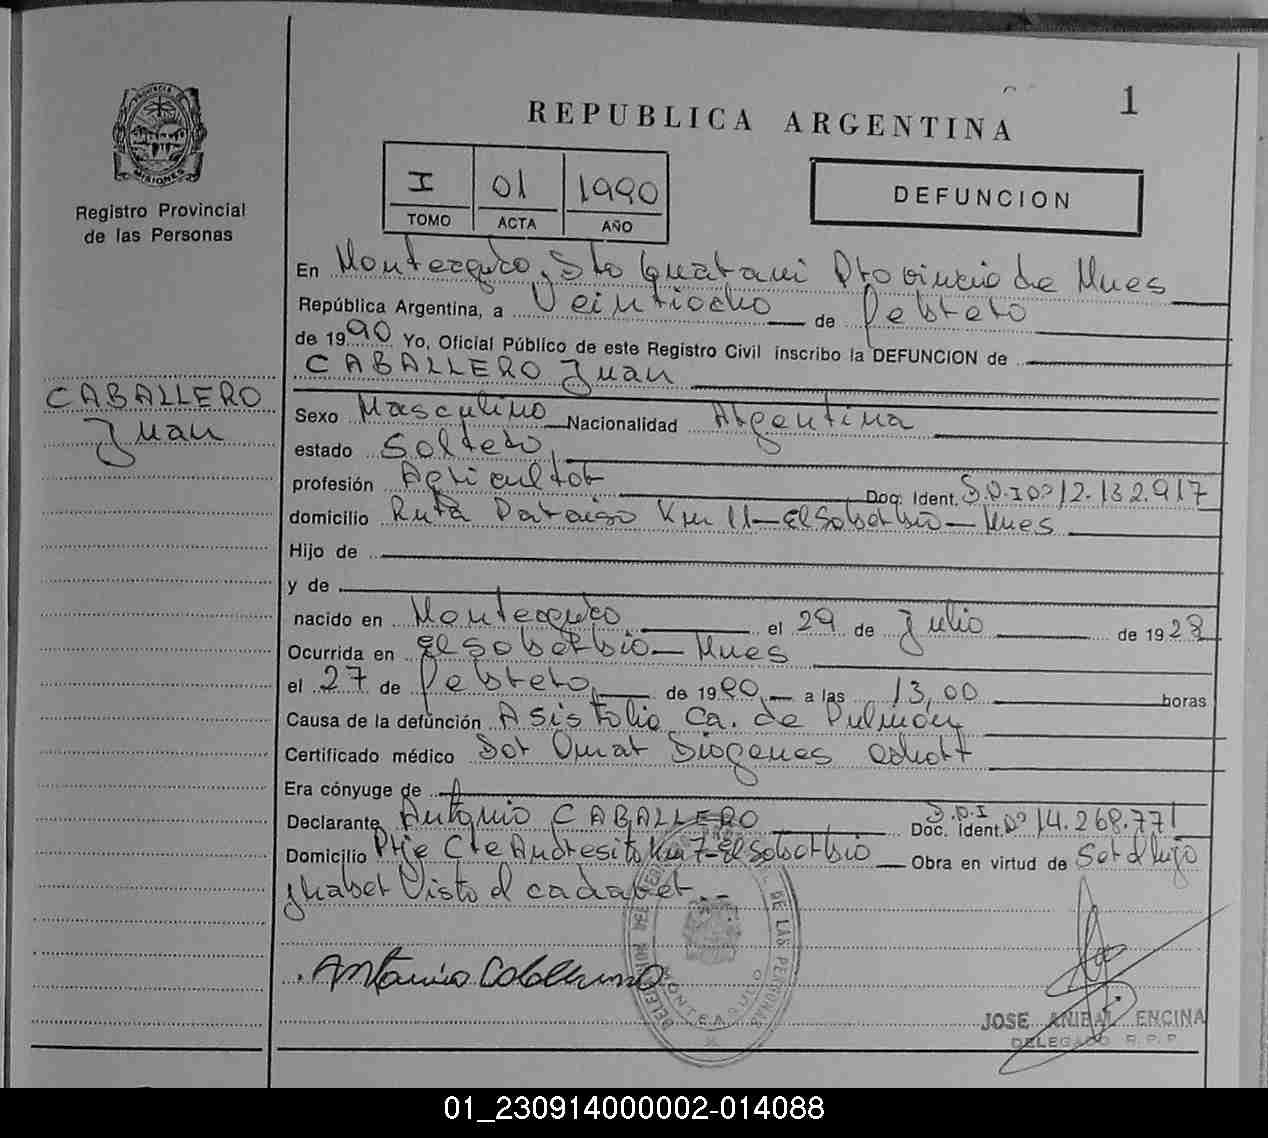 1
REPUBLICA ARGENTINA
PROVINCIA DE
MISIONES
Registro Provincial
de las Personas
I 01 1990
TOMO ACTA AÑO
DEFUNCION
En Monteagudo, Sto Guaraní Provincia de Mnes
República Argentina, a Veintiocho de Febrero
de 1990 Yo, Oficial Público de este Registro Civil inscribo la DEFUNCION de
CABALLERO Juan
CABALLERO
Juan
Sexo Masculino Nacionalidad Argentina
estado Soltero
profesión Agricultor Doc. Ident. D.N.I Nº 12.132.917
domicilio Ruta Paraiso Km 11 - El Soberbio - Mnes
Hijo de
y de
nacido en Monteagudo el 29 de Julio de 1928
Ocurrida en El Soberbio - Mnes
el 27 de Febrero de 1990 a las 13,00 horas
Causa de la defunción Asistolia Ca. de Pulmón
Certificado médico Dor Omar Diogenes
Era cónyuge de
Declarante Antonio CABALLERO D.N.I
Doc. Ident. Nº 14.268.771
Domicilio Pje Cte Andresito Km 7 - El Soberbio Obra en virtud de Ser el hijo
y haber Visto el cadaver.-
DE LAS PERSONAS
MONTEAGUDO
JOSE ANIBAL ENCINA
DELEGADO R.P.P.
01_230914000002-014088